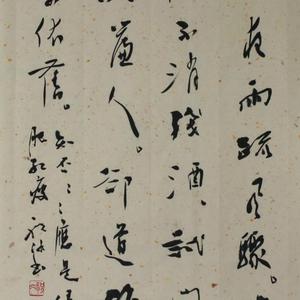 夜雨疏风驟。
不消殘酒。試
簾人。卻道
依舊。
知否〻〻應是
肥紅瘦